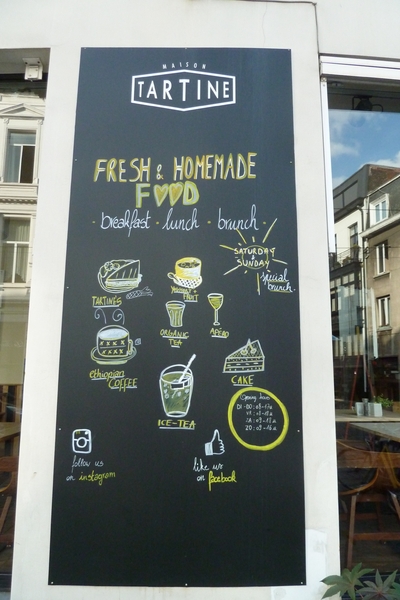 MAISON
TARTINE
FRESH & HOMEMADE
FOOD
breakfast · lunch · brunch ·
SATURDAY
&
SUNDAY
special
brunch
TARTINES
YOGHURT
FRUIT
ORGANIC
TEA
APÉRO
ethiopian
COFFEE
ICE-TEA
CAKE
Opening hours
DI-DO:
VR:
ZA:
ZO:
follow us
on instagram
like us
on facebook